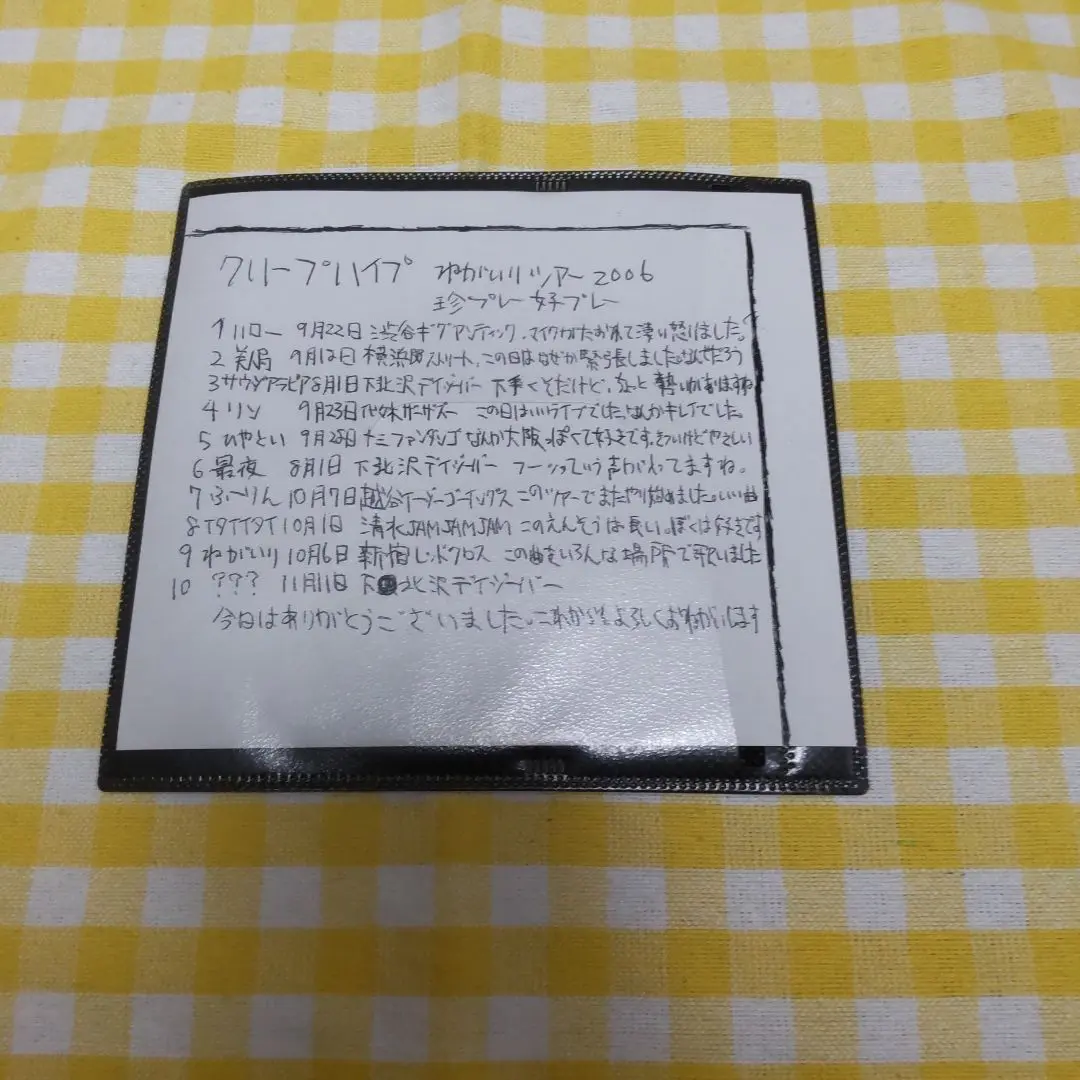 クリープハイプ ねがいりツアー 2006
珍プレー 好プレー
1 ハロー 9月22日 渋谷ギグアンティック、マイクがたおれて凄い怒りました。
2 美人局 9月12日 横浜 ストリート、この日はなぜか緊張しました。なぜだろう
3 サウジアラビア 8月1日 下北沢デイジーバー 下手くそだけど、 勢いがありますね
4 リン 9月23日 代々木ザーザズー この日はいいライブでした。なんかキレイでした。
5 ひやとい 9月28日 十三ファンダンゴ なんか大阪っぽくて好きです。きついけどやさしい
6 最夜 8月1日 下北沢デイジーバー フーッっていう声が入ってますね。
7 ふーりん 10月7日 越谷イージーゴーイングス このツアーでまたやり始めました。いい曲
8 イタイイタイ 10月1日 清水JAMJAMJAM このえんそうは長い。ぼくは好きです
9 ねがいり 10月6日 新宿レッドクロス この曲をいろんな場所で歌いました
10 ??? 11月11日 下北沢デイジーバー
今日はありがとうございました。これからもよろしくおねがいします